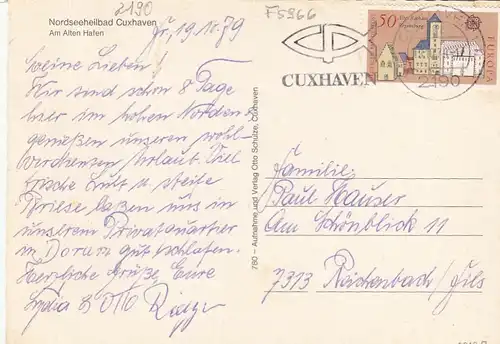 Nordseeheilbad Cuxhaven
Am Alten Hafen
2190
Fr, 19.10.79
F5966
Meine Lieben!
Wir sind schon 8 Tage
hier im hohen Norden
genießen unseren wohl-
verdienten Urlaub. Viel
frische Luft u. steife
Briese laßen uns in
unserem Privatquartier
in Dorum gut schlafen.
Herzliche Grüße Eure
Lydia & Otto
780 – Aufnahme und Verlag Otto Schütze, Cuxhaven
CUXHAVEN
50
EUROPA
2190
Familie
Paul Hauser
Am Schönblick 11
7313 Reichenbach/Fils